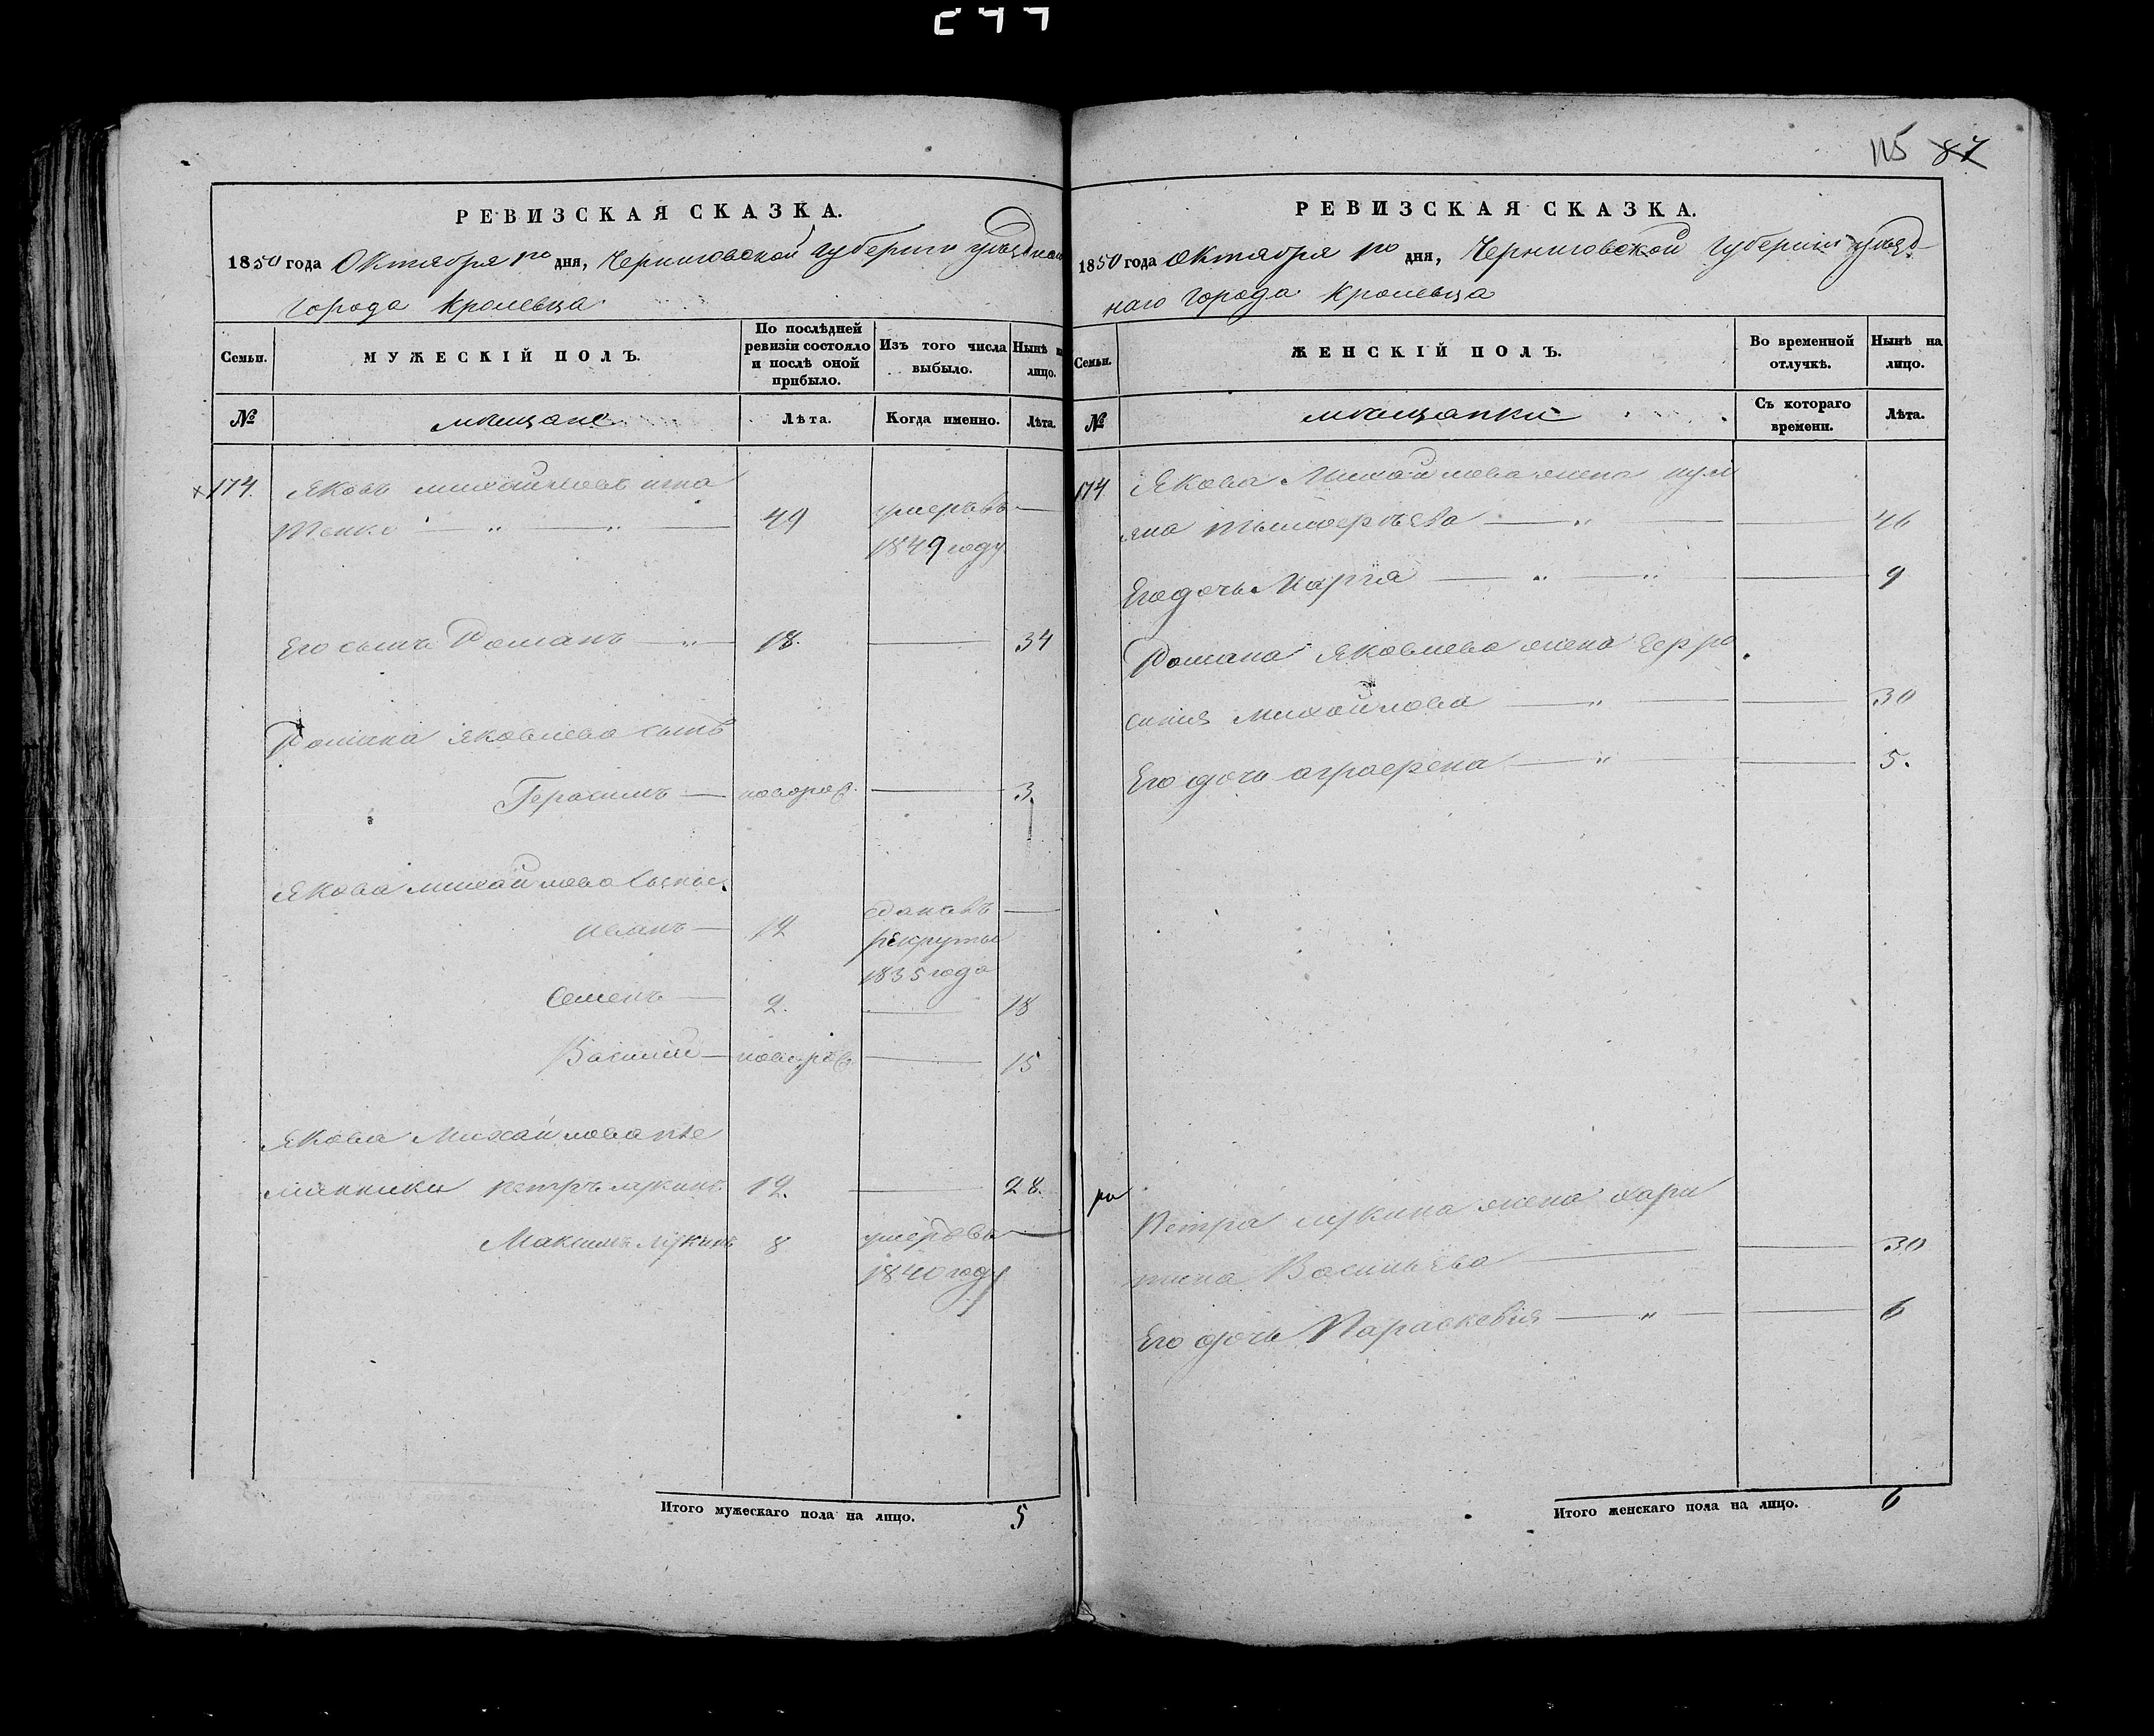 115 87
РЕВИЗСКАЯ СКАЗКА.
1850 года Октября 1го дня, Черниговской Губернии уѣзднаго
города Кролевца
Семьи.
МУЖЕСКІЙ ПОЛЪ.
По послѣдней ревизіи состояло и послѣ оной прибыло.
Изъ того числа выбыло.
Нынѣ на лицо.
№
мѣщане
Лѣта.
Когда именно.
Лѣта.
174. Яковъ Михайловъ
49 умеръ въ —
1849 году
Его сынъ Романъ — 18. — 34
Романа Яковлева сынъ
Герасимъ — новорож. — 3.
Якова Михайлова сынья.
Иванъ — 14 сданъ въ —
рекруты
1835 года
Семенъ — 2. — 18
Василий — новорож. — 15
Якова Михайлова пле
мянники Петръ Лукинъ 12. — 28.
Максимъ Лукинъ 8 умеръ въ —
1840 году
Итого мужескаго пола на лицо. 5
РЕВИЗСКАЯ СКАЗКА.
1850 года Октября 1го дня, Черниговской Губернии уѣзд-
наго города Кролевца
Семьи.
ЖЕНСКІЙ ПОЛЪ.
Во временной отлучкѣ.
Нынѣ на лицо.
№
мѣщанки
Съ котораго времени.
Лѣта.
174. Якова Михайлова жена Улі
яна — 46
Его дочь Марфа — 9
Романа Яковлева жена Ефро
синия Михайлова — 30
Его дочь Аграфена — 5.
Петра Лукина жена Хари
тина Васильева — 30
Его дочь Параскевія — 6
Итого женскаго пола на лицо. 6